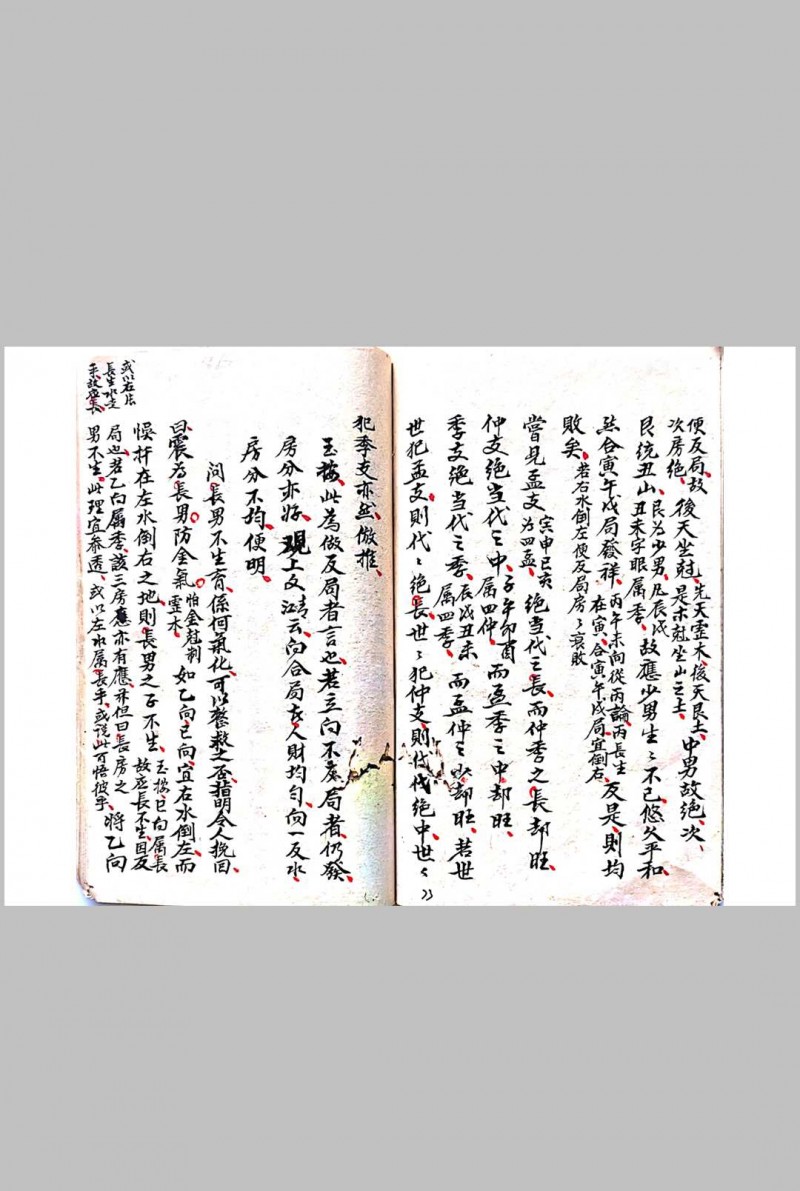 便反局、故次房絶、後天坐尅、先天靈木、後天艮土、是木尅坐山之土、中男故絶、次
艮統丑山、艮為少男、凡辰戌丑未字眼屬季、故應少男生〻不已、悠久平和、
然合寅午戌局發祥、丙午未向從丙論、丙長生在寅、合寅午戌局、宜倒右、反是、則均
敗矣、若右水倒左、便反局、房〻哀敗
嘗見孟支、寅申巳亥為四孟、絶當代之長、而仲季之長却旺、
仲支絶當代之中、子午卯酉屬四仲、而孟季之中却旺、
季支絶當代之季、辰戌丑未屬四季、而孟仲之少却旺、若世
世犯孟支、則代〻絶長、世〻犯仲支、則代代絶中、世〻
犯季支亦然、倣推、
玉按、此為做反局者言也、若立向不處局者、仍發、
房分亦好、觀上文清云、向合局、衣人財均匀、向一反水、
房分不均、便明、
問長男不生育、係何氣化、可以整救之否、指明令人挽回、
曰、震為長男、防金氣、怕金尅制靈木、如乙向巳向、宜右水倒左、而
悞扦在左水倒右之地、則長男之子不生、玉按、巳向屬長、故應長不生、因反
局也、若乙向屬季、該三房應亦有應、不但曰長房之
男不生、此理宜參透、或以左水屬長乎、或說此可悟彼乎、將乙向
或以右片
長生水之
來、故應長